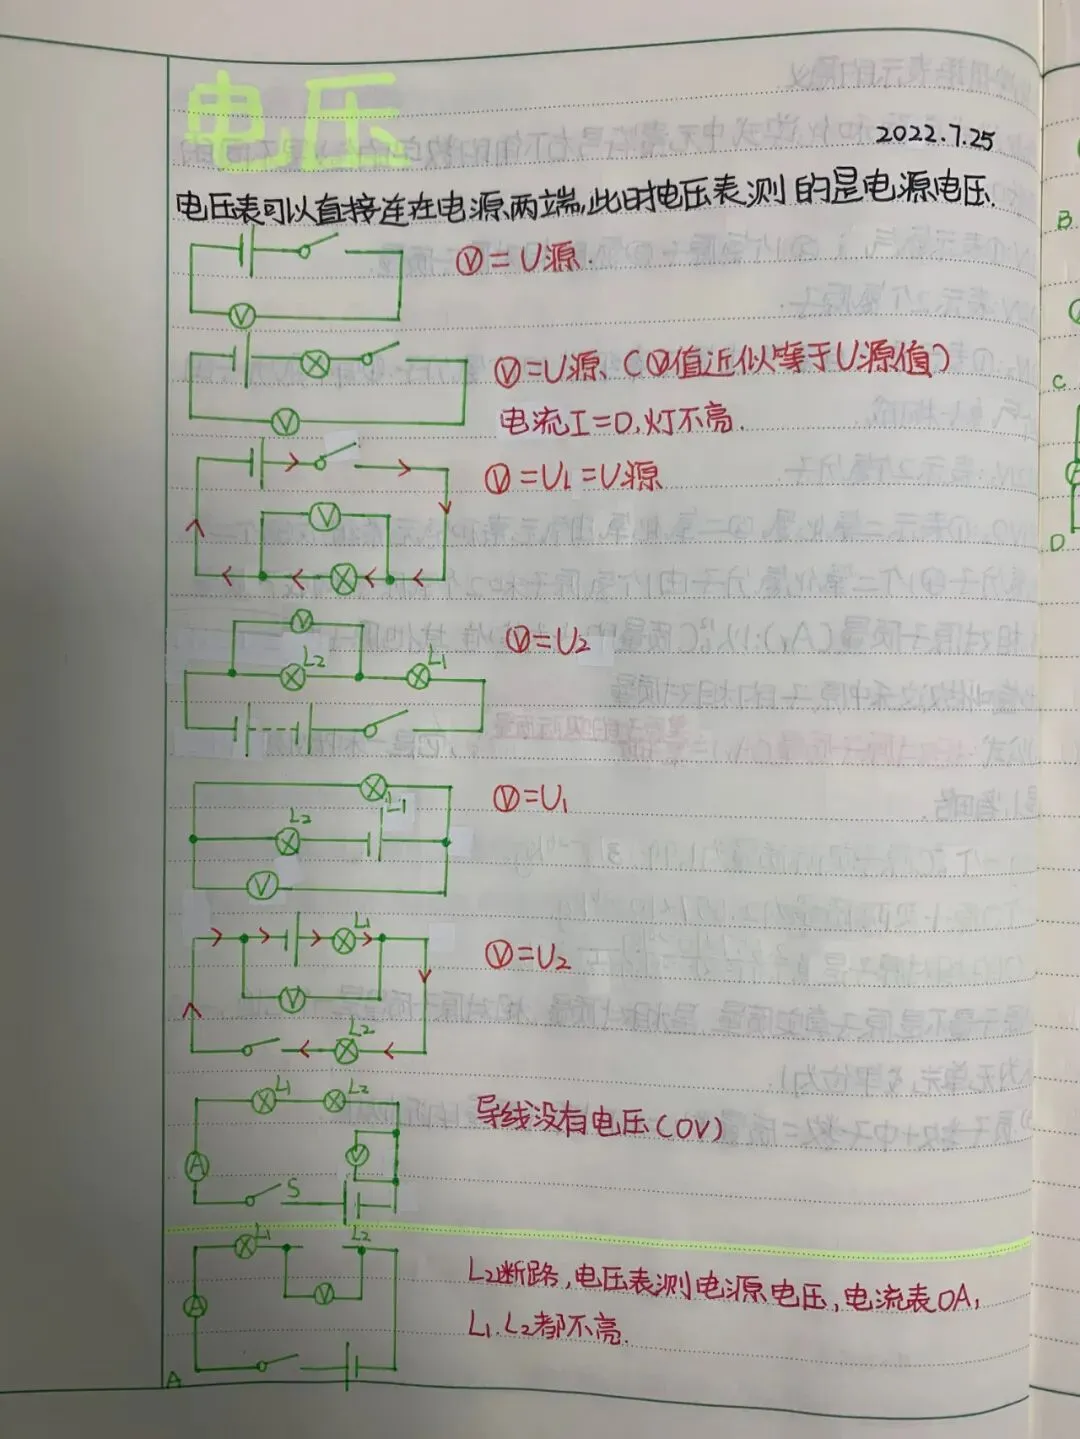 电压
2022.7.25
电压表可以直接连在电源两端,此时电压表测的是电源电压.
V
Ⓥ=U源.
V
Ⓥ=U源、(Ⓥ值近似等于U源值)
电流I=0,灯不亮.
V
Ⓥ=U₁=U源
V
L2 L1
Ⓥ=U₂
L1
L2
V
Ⓥ=U₁
L1
V
L2
Ⓥ=U₂
L1 L2
A V
S
导线没有电压(0V)
L1 L2
A V
L₂断路,电压表测电源电压,电流表0A,
L₁.L₂都不亮.
A
B
C
D